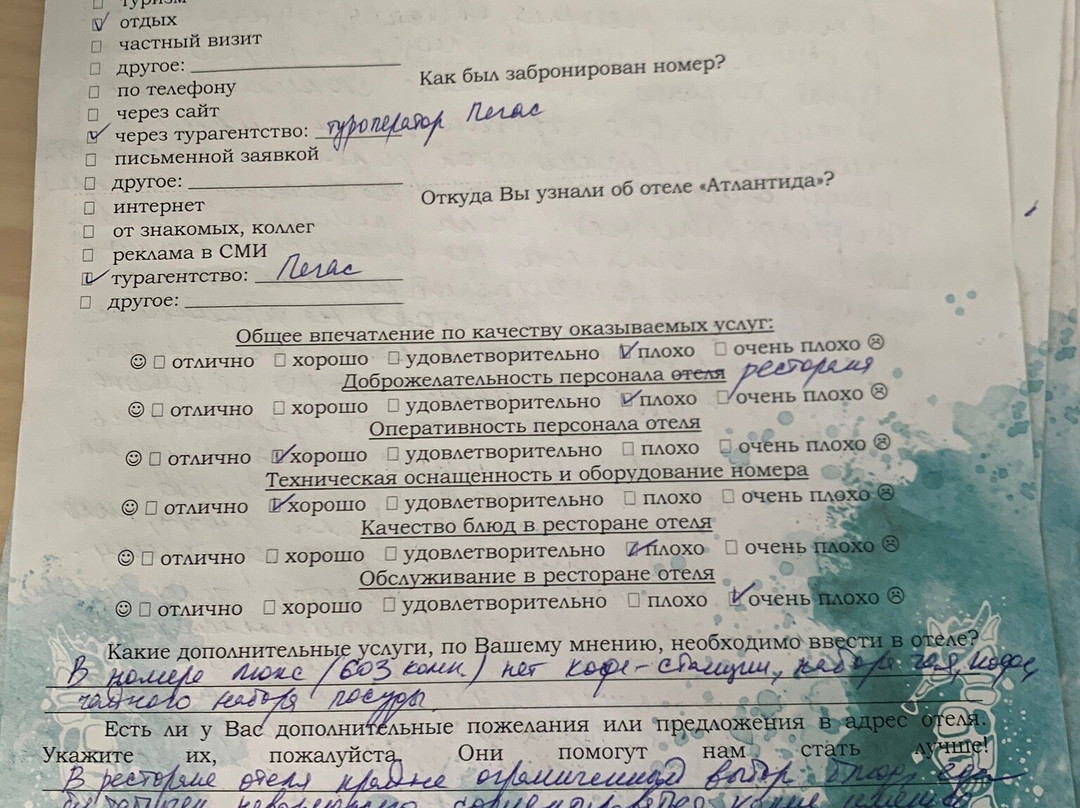 туризм
отдых
частный визит
другое:
Как был забронирован номер?
по телефону
через сайт
через турагентство: туроператор Пегас
письменной заявкой
другое:
Откуда Вы узнали об отеле «Атлантида»?
интернет
от знакомых, коллег
реклама в СМИ
турагентство: Пегас
другое:
Общее впечатление по качеству оказываемых услуг:
☺ □ отлично □ хорошо □ удовлетворительно ☑ плохо □ очень плохо ☹
Доброжелательность персонала отеля ресторана
☺ □ отлично □ хорошо □ удовлетворительно ☑ плохо □ очень плохо ☹
Оперативность персонала отеля
☺ □ отлично ☑ хорошо □ удовлетворительно □ плохо □ очень плохо ☹
Техническая оснащенность и оборудование номера
☺ □ отлично ☑ хорошо □ удовлетворительно □ плохо □ очень плохо ☹
Качество блюд в ресторане отеля
☺ □ отлично □ хорошо □ удовлетворительно ☑ плохо □ очень плохо ☹
Обслуживание в ресторане отеля
☺ □ отлично □ хорошо □ удовлетворительно □ плохо ☑ очень плохо ☹
Какие дополнительные услуги, по Вашему мнению, необходимо ввести в отеле?
В номере люкс (603 комн.) нет кофе-станции, набора чая, кофе,
чайного набора посуды
Есть ли у Вас дополнительные пожелания или предложения в адрес отеля.
Укажите их, пожалуйста. Они помогут нам стать лучше!
В ресторане отеля крайне ограниченный выбор блюд, еда